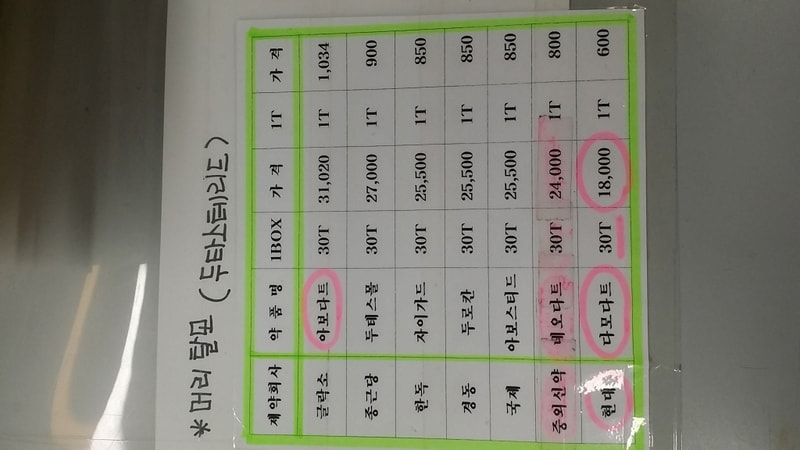 *머리 탈모 (두타스테리드)
제약회사 약품명 1BOX 가격 1T 가격
글락소 아보다트 30T 31,020 1T 1,034
종근당 두테스몰 30T 27,000 1T 900
한독 자이가드 30T 25,500 1T 850
경동 두로칸 30T 25,500 1T 850
국제 아보스티드 30T 25,500 1T 850
중외신약 네오다트 30T 24,000 1T 800
현대 다포다트 30T 18,000 1T 600